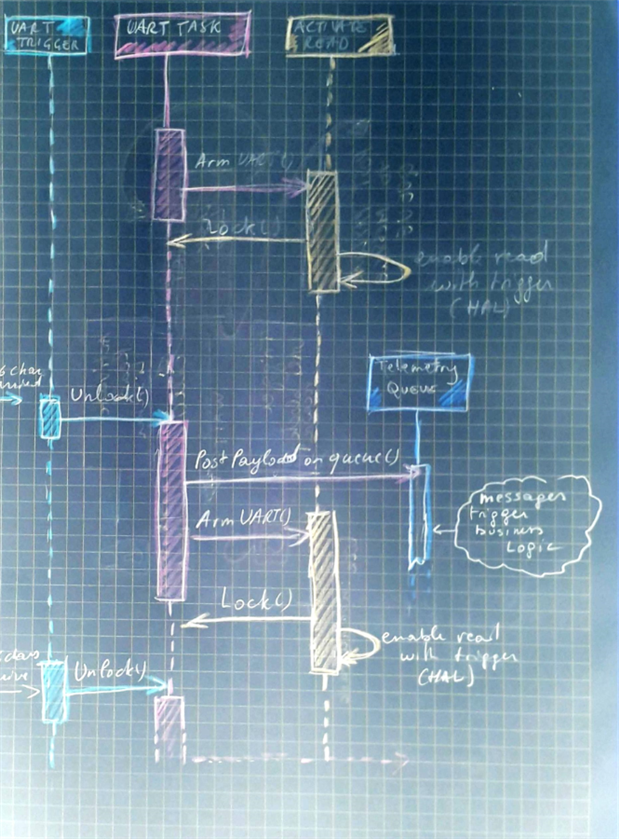 UART
TRIGGER
UART TASK
ACTIVATE
READ
Arm UART()
Lock()
enable read
with trigger
(HAL)
char
Unlock()
Telemetry
Queue
Post Payload on queue()
messages
trigger
business
Logic
Arm UART()
Lock()
enable read
with trigger
(HAL)
Unlock()